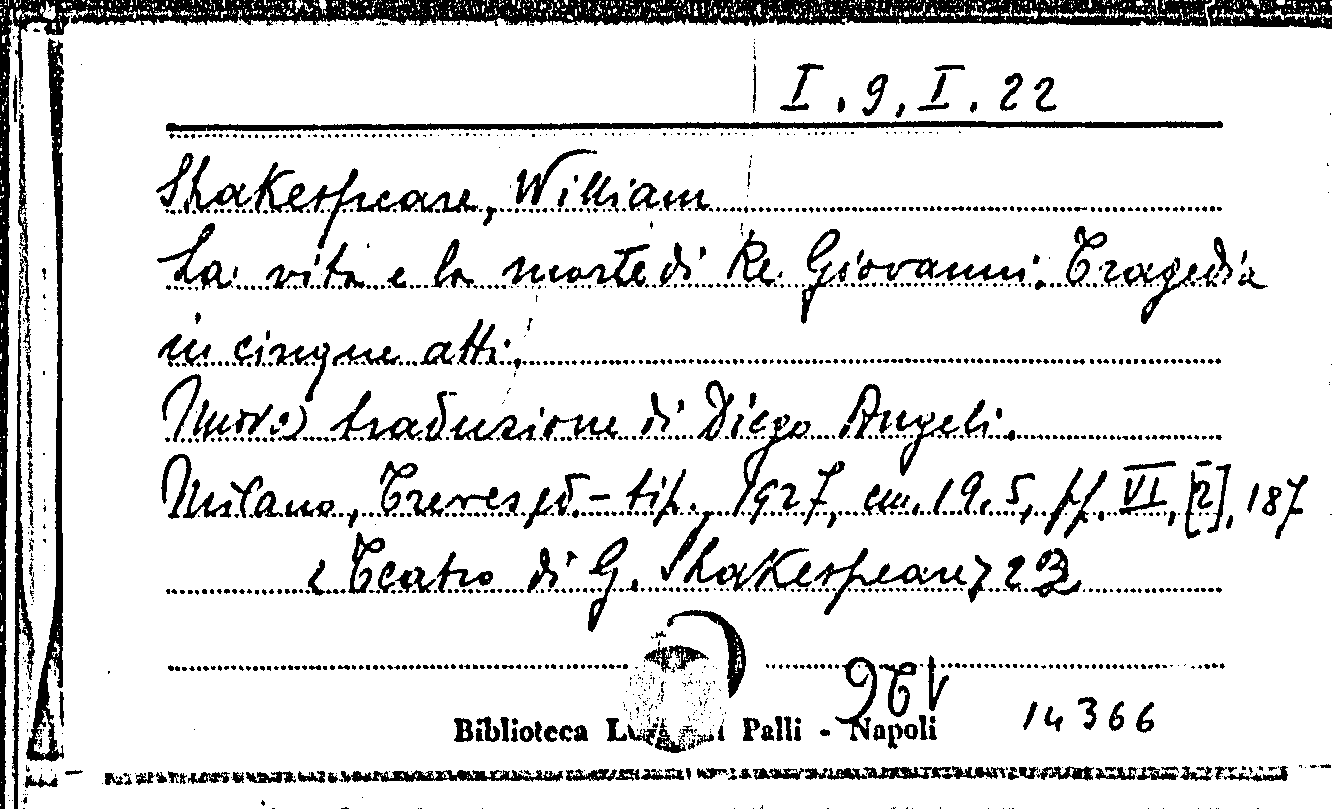 I. 9. I. 22
Shakespeare, William
La vita e la morte di Re Giovanni. Tragedia
in cinque atti.
Nuova traduzione di Diego Angeli.
Milano, Treves ed.-tip., 1927, cm. 19.5, pp. VI, [2], 187
Teatro di G. Shakespeare, 23
Biblioteca Palli - Napoli
14366